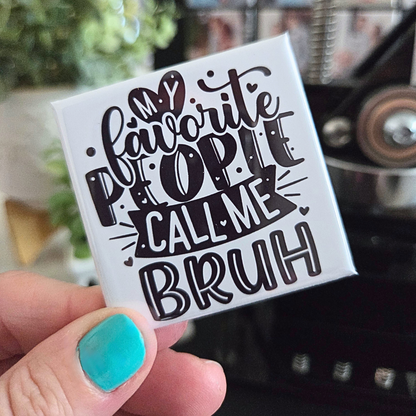 MY
favorite
PEOPLE
CALL ME
BRUH